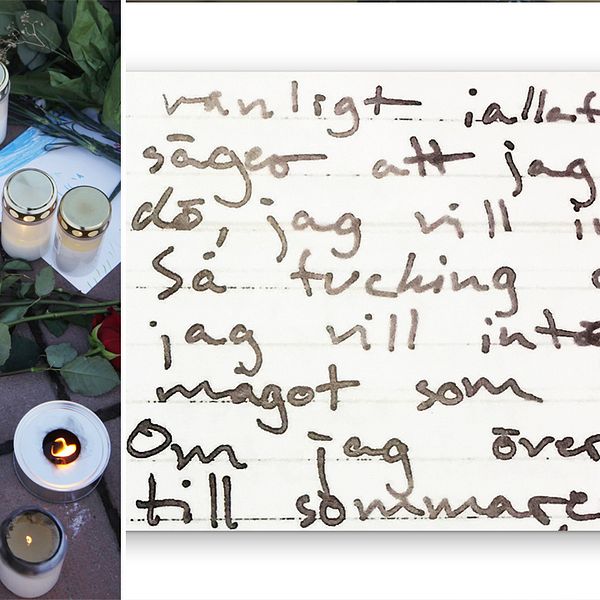 vanligt iallaf
säger att jag
dö, jag vill i
Så fucking
jag vill inte
magot som
Om jag över
till sommare